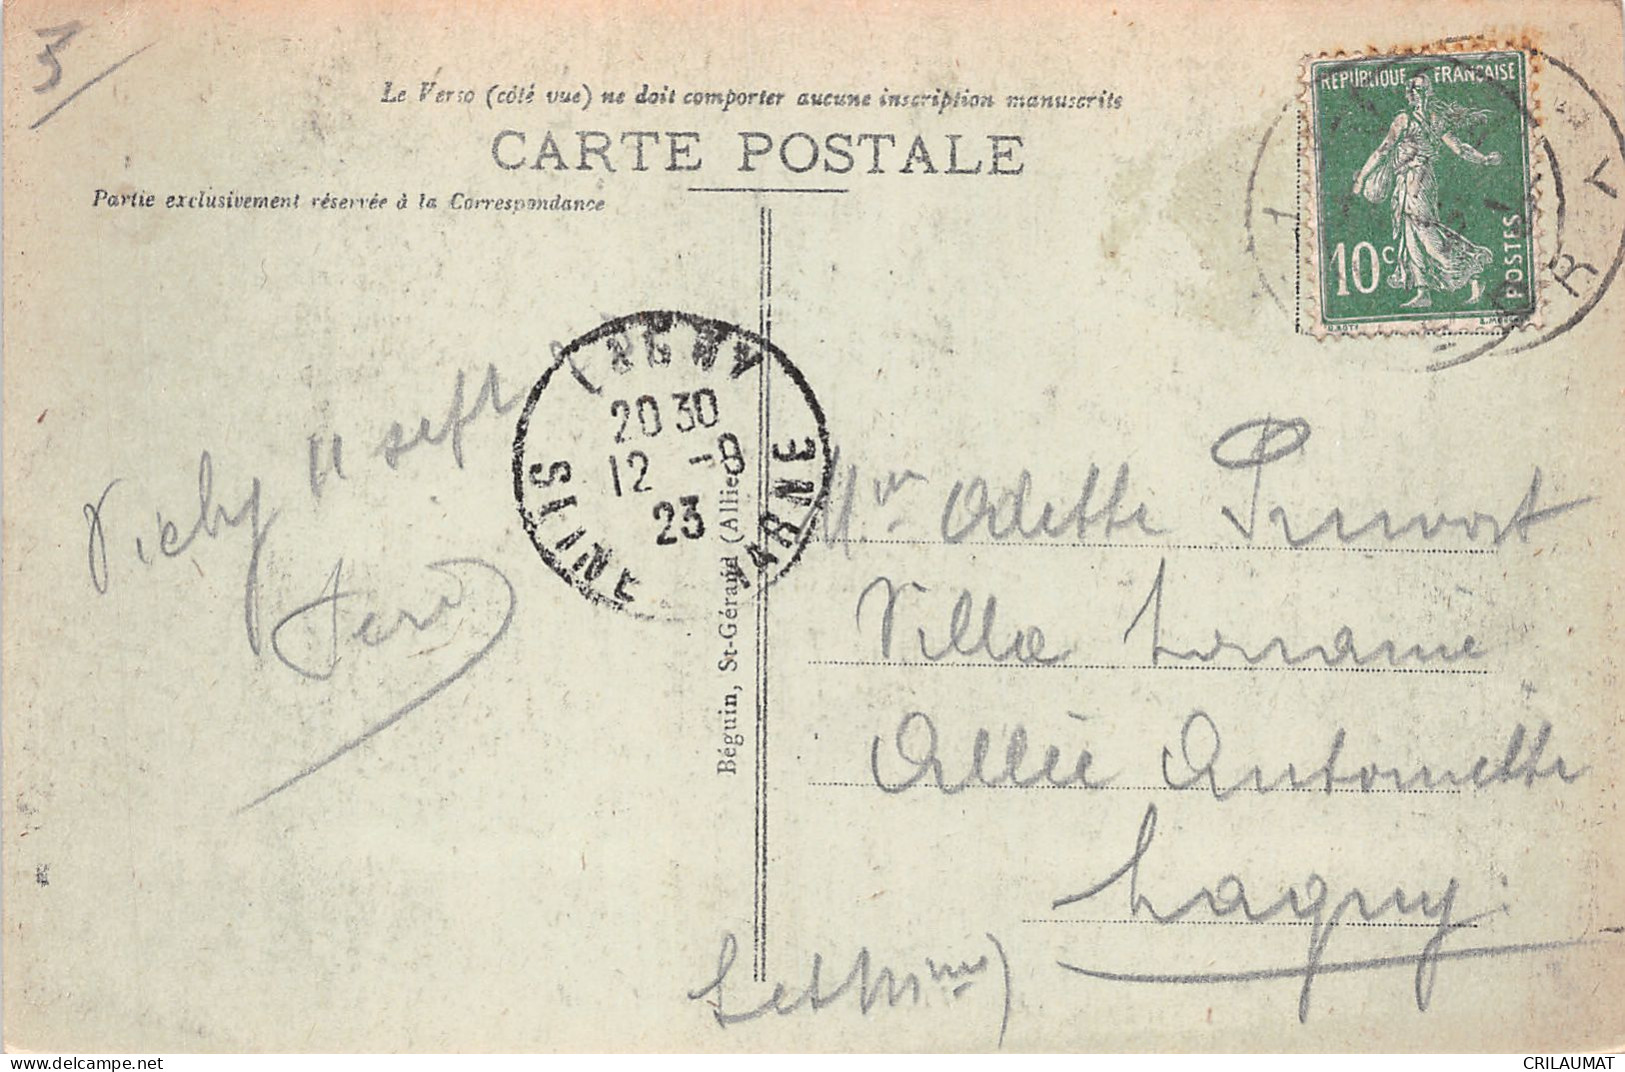 3
Le Verso (côté vue) ne doit comporter aucune inscription manuscrite
CARTE POSTALE
Partie exclusivement réservée à la Correspondance
REPUBLIQUE FRANÇAISE
10c
POSTES
LAGNY
20 30
12 -9
23
MARNE
Vichy 11 sept
Béguin, St-Gérand (Allier)
Odette Pruvost
Villa Lorraine
Allée Antoinette
Lagny
(S et Marne)
CRILAUMAT